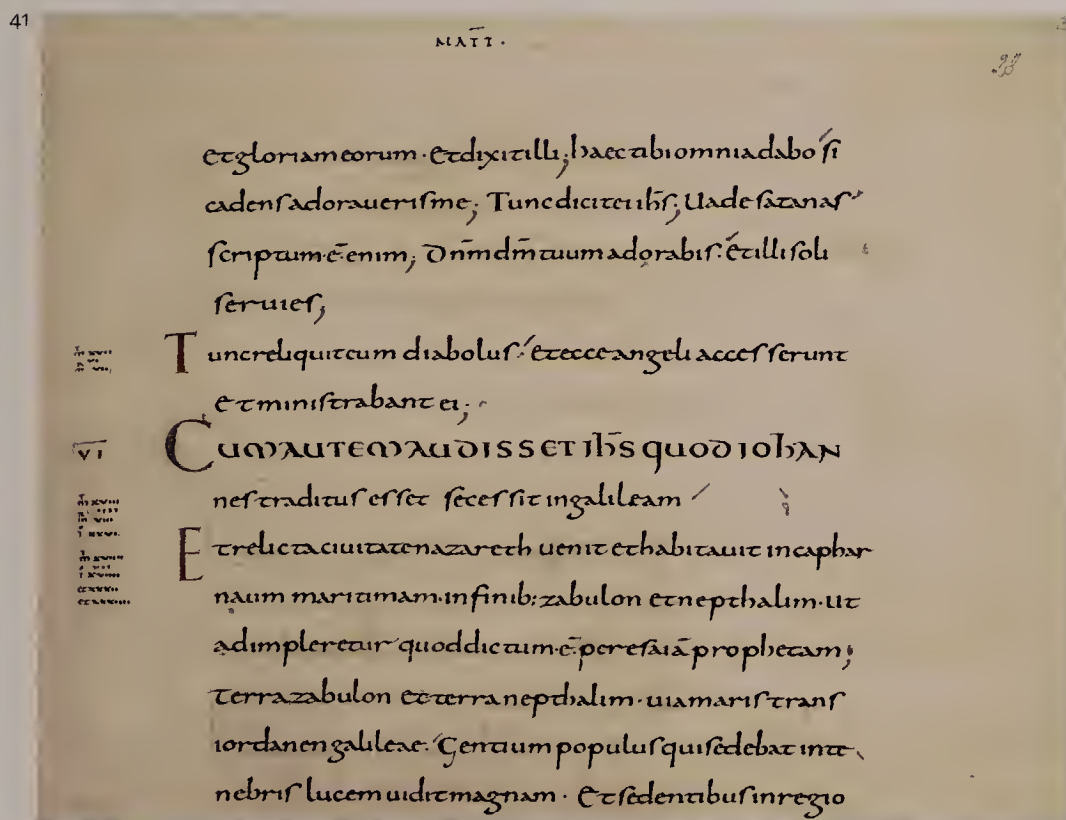 41
MAT̅T·
et gloriam eorum · Et dixit illi; haec tibi omnia dabo si
cadens adoraueris me; Tunc dicit ei ih̅s; Uade satanas
scriptum · e̅ · enim; Dn̅m dm̅ tuum adorabis · et illi soli
seruies;
Tunc reliquit eum diabolus · et ecce angeli accesserunt
et ministrabant ei;
VI
CUM AUTEM AUDISSET ih̅s quod iohAN
nes traditus esset secessit in galileam
Et relicta ciuitate nazareth uenit et habitauit in caphar
naum maritimam · in finib: zabulon et nepthalim · ut
adimpleretur quod dictum · e̅ · per esaia̅ prophetam;
Terra zabulon et terra nepthalim · uia maris trans
iordanen galileae · Gentium populus qui sedebat in te
nebris lucem uidit magnam · Et sedentibus in regio